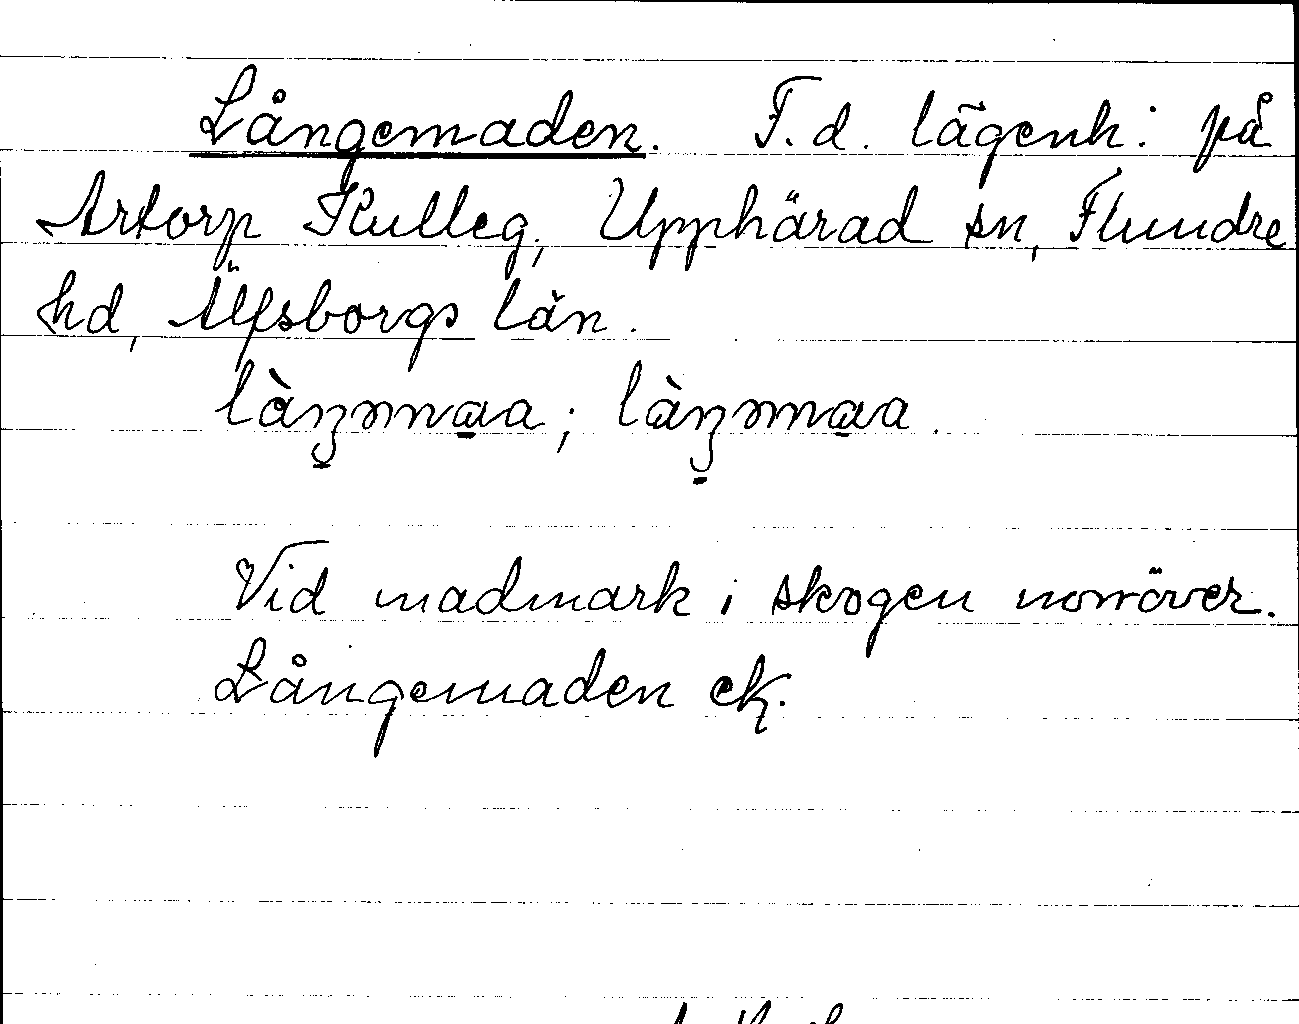 Långemaden. F.d. lägenh: på
Artorp Kulleg, Upphärad sn, Flundre
hd, Älfsborgs län.
Vid madmark i skogen norröver.
Långemaden ek.